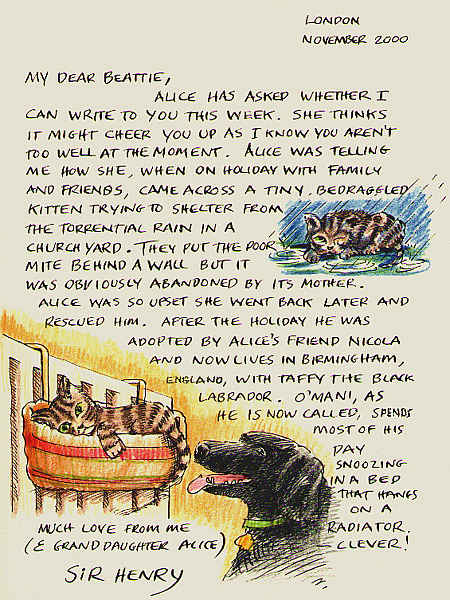 LONDON
NOVEMBER 2000
MY DEAR BEATTIE,
ALICE HAS ASKED WHETHER I
CAN WRITE TO YOU THIS WEEK. SHE THINKS
IT MIGHT CHEER YOU UP AS I KNOW YOU AREN'T
TOO WELL AT THE MOMENT. ALICE WAS TELLING
ME HOW SHE, WHEN ON HOLIDAY WITH FAMILY
AND FRIENDS, CAME ACROSS A TINY, BEDRAGGLED
KITTEN TRYING TO SHELTER FROM
THE TORRENTIAL RAIN IN A
CHURCHYARD. THEY PUT THE POOR
MITE BEHIND A WALL BUT IT
WAS OBVIOUSLY ABANDONED BY ITS MOTHER.
ALICE WAS SO UPSET SHE WENT BACK LATER AND
RESCUED HIM. AFTER THE HOLIDAY HE WAS
ADOPTED BY ALICE'S FRIEND NICOLA
AND NOW LIVES IN BIRMINGHAM,
ENGLAND, WITH TAFFY THE BLACK
LABRADOR. O'MANI, AS
HE IS NOW CALLED, SPENDS
MOST OF HIS
DAY
SNOOZING
IN A BED
THAT HANGS
ON A
RADIATOR.
CLEVER!
MUCH LOVE FROM ME
(& GRANDDAUGHTER ALICE)
SIR HENRY